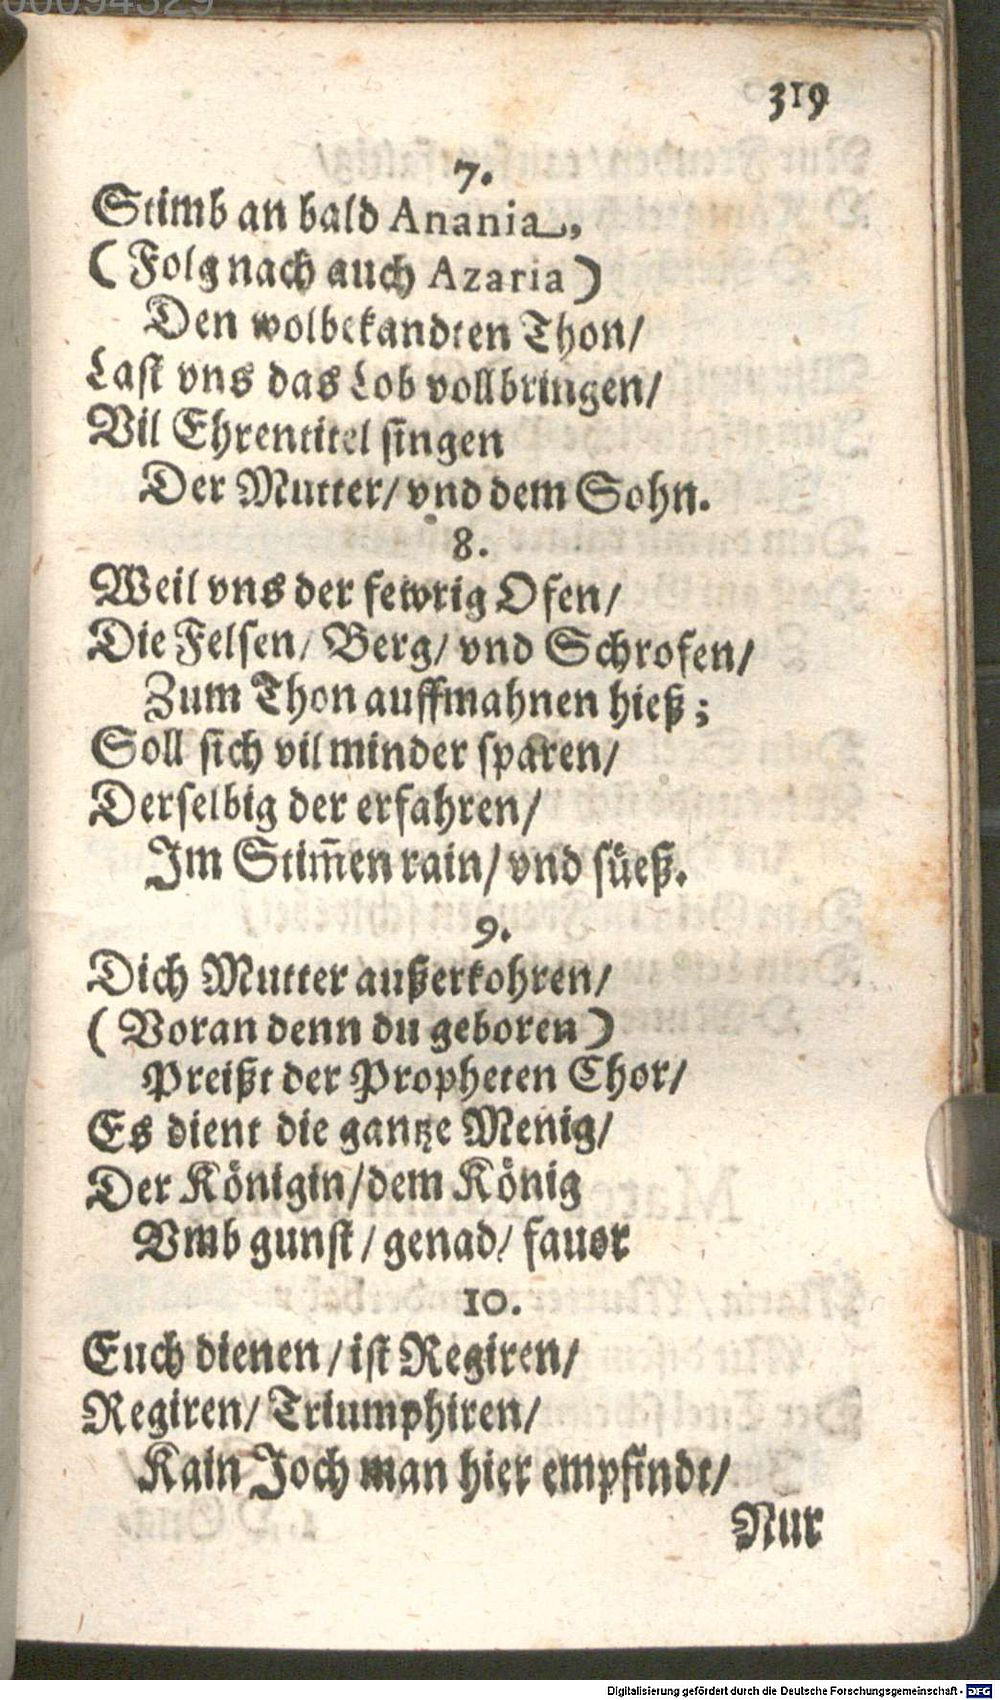 00094329
319
7.
Stimb an bald Anania,
( Folg nach auch Azaria )
Den wolbekandten Thon/
Last vns das Lob vollbringen/
Vil Ehrentitel singen
Der Mutter/ vnd dem Sohn.
8.
Weil vns der fewrig Ofen/
Die Felsen/ Berg/ vnd Schrofen/
Zum Thon auffmahnen hieß;
Soll sich vil minder sparen/
Derselbig der erfahren/
Im Stim̃en rain/ vnd süeß.
9.
Dich Mutter außerkohren/
( Voran denn du geboren )
Preißt der Propheten Chor/
Es dient die gantze Menig/
Der Königin/dem König
Vmb gunst / genad/ fauor
10.
Euch dienen / ist Regiren/
Regiren/ Triumphiren/
Kain Joch man hier empfindt/
Nur
Digitalisierung gefördert durch die Deutsche Forschungsgemeinschaft - DFG